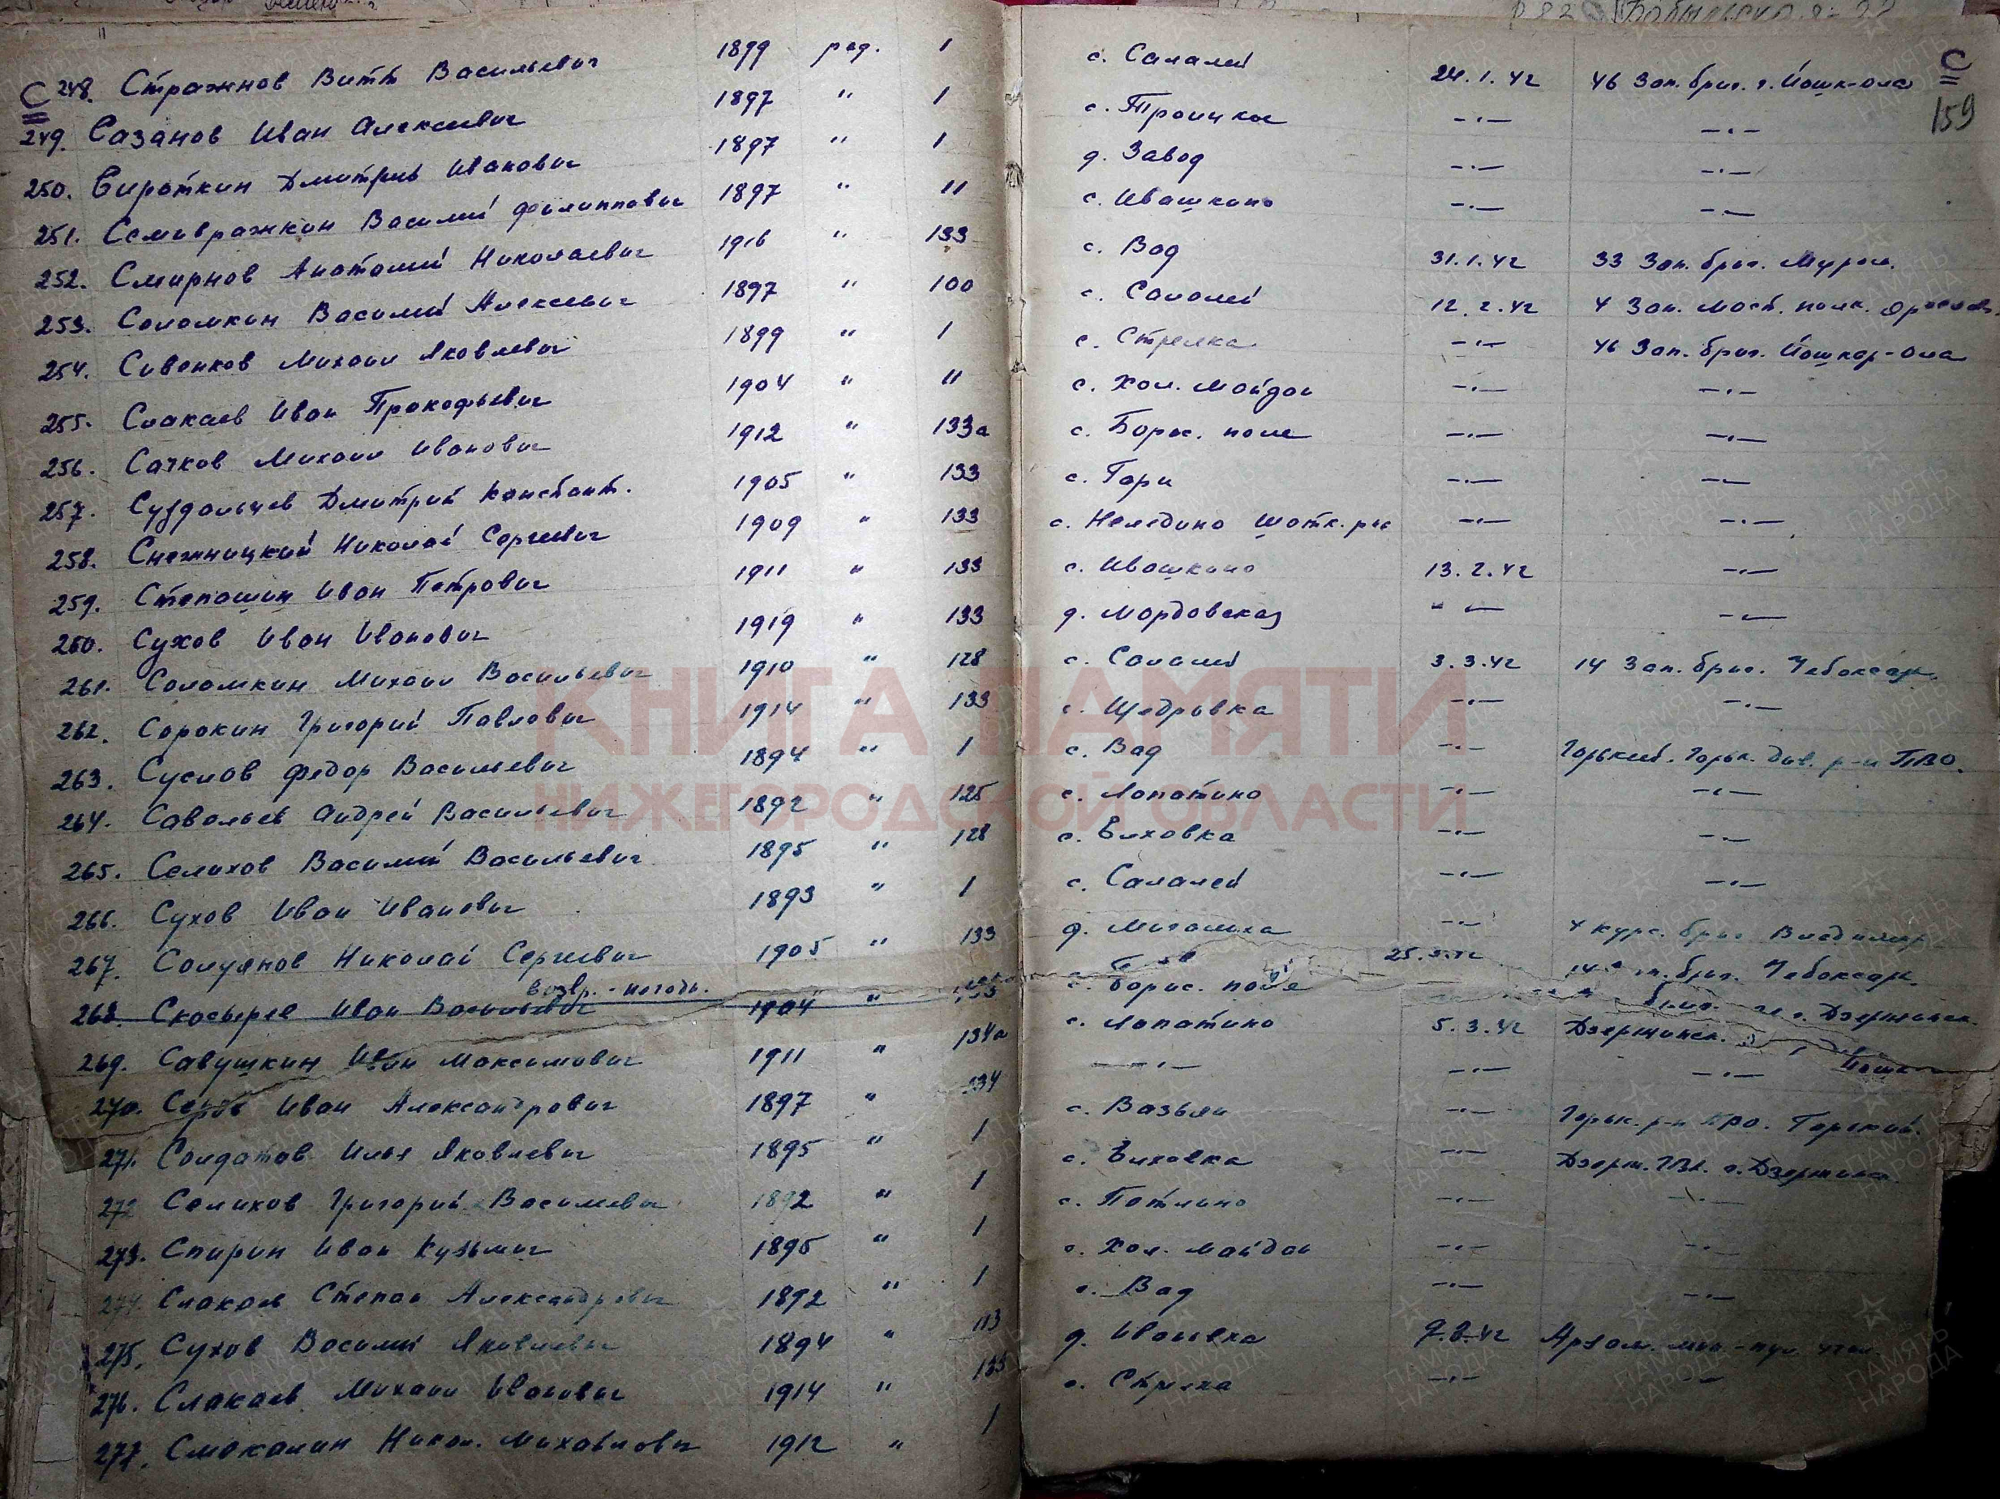 С 248. Стражнов Витт Васильевич 1899 ряд. 1 с. Салалей 24.1.42 46 Зап. бриг. г. Йошк-ола С
159
249. Сазанов Иван Алексеевич 1897 " 1 с. Троицкое -·- -·-
250. Сироткин Дмитрий Иванович 1897 " 1 д. Завод -·- -·-
251. Семивражкин Василий Филиппович 1897 " 11 с. Ивашкино -·- -·-
252. Смирнов Анатолий Николаевич 1916 " 133 с. Вад 31.1.42 33 Зап. бриг. Муром.
253. Соломкин Василий Алексеевич 1897 " 100 с. Салалей 12.2.42 4 Зап. полк.
254. Сивенков Михаил Яковлевич 1899 " 1 с. Стрелка -·- 46 Зап. бриг. Йошкар-Ола
255. Слакаев Иван Прокофьевич 1904 " 11 с. Хол. Майдан -·- -·-
256. Сачков Михаил Иванович 1912 " 133а с. Борис. поле -·- -·-
257. Суздальцев Дмитрий Констант. 1905 " 133 с. Гари -·- -·-
258. Снежницкий Николай Сергеевич 1909 " 133 с. Неледино Шатк. р-на -·- -·-
259. Степашин Иван Петрович 1911 " 133 с. Ивашкино 13.2.42 -·-
260. Сухов Иван Иванович 1919 " 133 д. Мордовская -·- -·-
261. Соломкин Михаил Васильевич 1910 " 128 с. Салалей 3.3.42 14 Зап. бриг. Чебоксар.
262. Сорокин Григорий Павлович 1914 " 133 с. Щедровка -·- -·-
263. Суслов Федор Васильевич 1894 " 1 с. Вад -·- Горький. Горьк. див. р-н ПВО.
264. Савельев Андрей Васильевич 1892 " 125 с. Лопатино -·- -·-
265. Селихов Василий Васильевич 1895 " 128 с. Елховка -·- -·-
266. Сухов Иван Иванович 1893 " 1 с. Салалей -·- -·-
267. Солуянов Николай Сергеевич 1905 " 133 д. Мигалиха -·- 4 курс. бриг. Владимир
возвр. - негодн.
268. Скосырев Иван Васильевич 1904 " с. Борис. поле 14 бриг. Чебоксар.
269. Савушкин Иван Максимович 1911 " 134а с. Лопатино 5.3.42 Дзержинск.
270. Серов Иван Александрович 1897 " 134 -·- -·- -·-
271. Солдатов Илья Яковлевич 1895 " 1 с. Вазьян -·- Горьк. р-н ПВО. Горький.
272 Селихов Григорий Васильевич 1892 " 1 с. Елховка -·- Дзерж. ГВК. г. Дзержинск.
273. Спирин Иван Кузьмич 1895 " 1 с. Потлино -·- -·-
274. Слакаев Степан Александрович 1892 " 1 с. Хол. Майдан -·- -·-
275. Сухов Василий Яковлевич 1894 " 113 с. Вад -·- -·-
276. Слакаев Михаил Иванович 1914 " 133 д. Арзам.
277. Смокалин Никол. Михайлович 1912 " 1 с. Стрелка -·- -·-
КНИГА ПАМЯТИ
НИЖЕГОРОДСКОЙ ОБЛАСТИ
ПАМЯТЬ НАРОДА